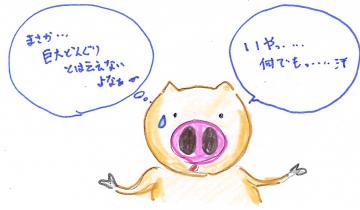 まさか…
巨大どんぐり
とは云えない
よなぁ〜
いやっ……
何でもっ……汗